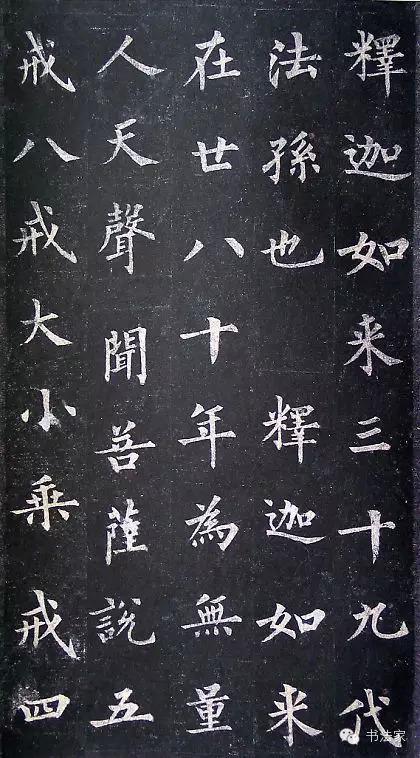 釋迦如来三十九代
法孫也釋迦如来
在世八十年為無量
人天聲聞菩薩說五
戒八戒大小乘戒四
书法家